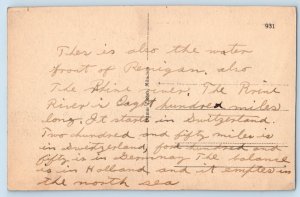 931
This is also the water
front of Remigan. also
The Rhine river. The Rhine
River is Eaght hundred miles
long. It starts in Switzerland.
Two hundred and fifty miles is
in Switzerland, four hundred and
fifty is in Germany The balance
is in Holland and it empties in
the north sea